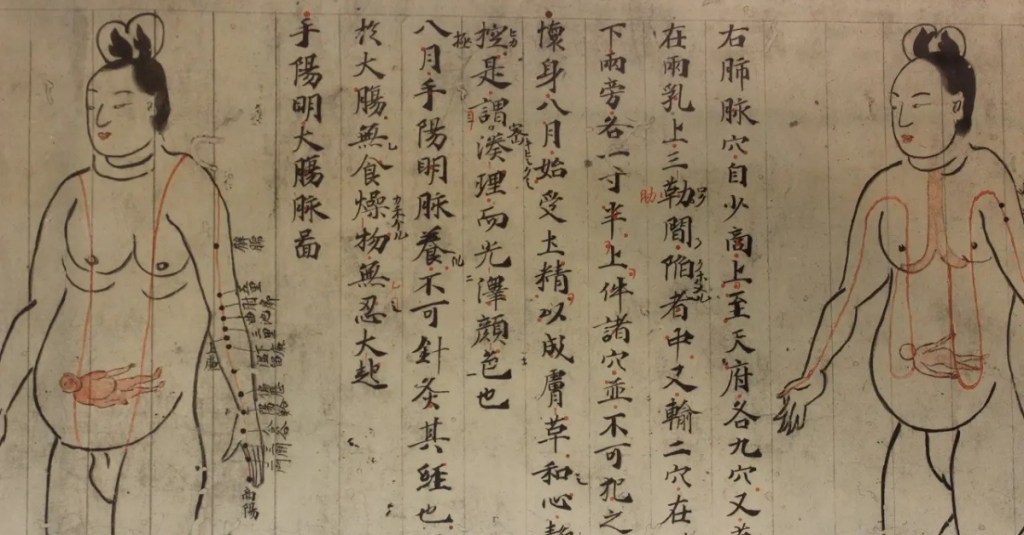 右肺脉穴自少商上至天府各九穴又
在兩乳上三勒間陷者中又輸二穴在
肋
下兩旁各一寸半上件諸穴並不可犯之
懷身八月始受土精以成膚草和心
控是謂湊理而光澤顔色也
八月手陽明脉養不可針灸其經也
極
於大腸無食燥物無忍大起
手陽明大腸脉啚
商陽